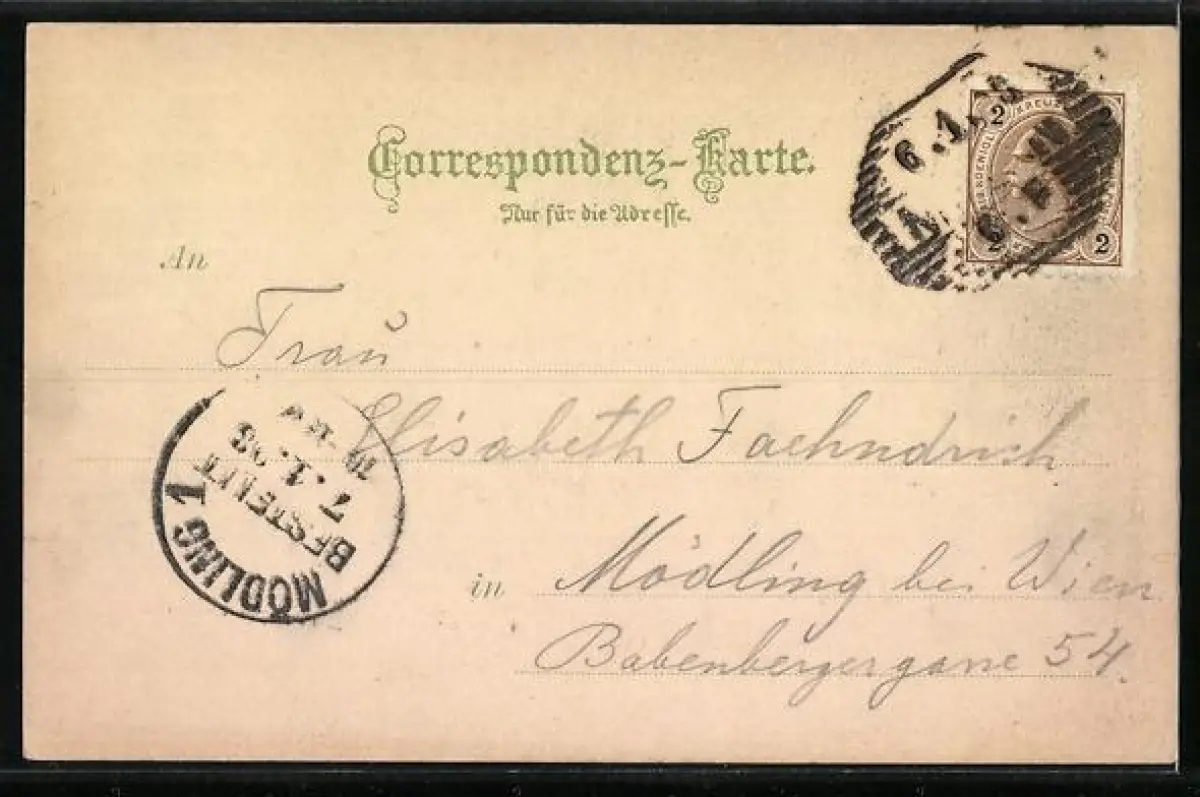 Correspondenz-Karte.
Nur für die Adresse.
2 KREUZ
2 2
6.1.
An
Frau
Elisabeth Faehndrich
in Mödling bei Wien
Babenbergergasse 54.
MÖDLING 1
BESTELLT
7.1.98